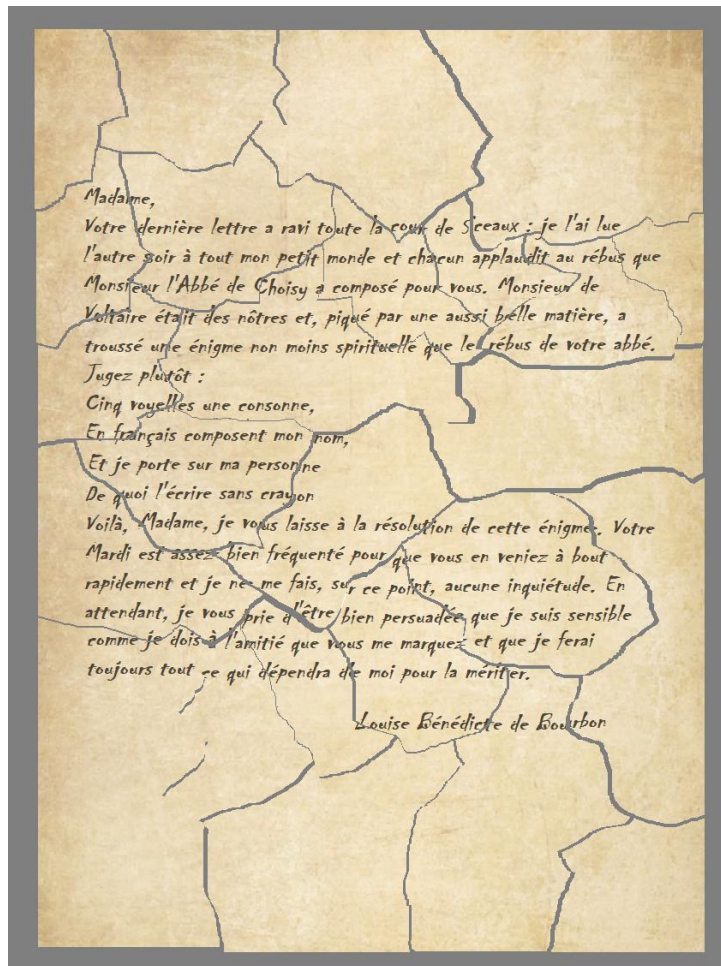 Madame,
Votre dernière lettre a ravi toute la cour de Sceaux : je l'ai lue
l'autre soir à tout mon petit monde et chacun applaudit au rébus que
Monsieur l'Abbé de Choisy a composé pour vous. Monsieur de
Voltaire était des nôtres et, piqué par une aussi belle matière, a
troussé une énigme non moins spirituelle que le rébus de votre abbé.
Jugez plutôt :
Cinq voyelles une consonne,
En français composent mon nom,
Et je porte sur ma personne
De quoi l'écrire sans crayon
Voilà, Madame, je vous laisse à la résolution de cette énigme. Votre
Mardi est assez bien fréquenté pour que vous en veniez à bout
rapidement et je ne me fais, sur ce point, aucune inquiétude. En
attendant, je vous prie d'être bien persuadée que je suis sensible
comme je dois à l'amitié que vous me marquez et que je ferai
toujours tout ce qui dépendra de moi pour la mériter.
Louise Bénédicte de Bourbon